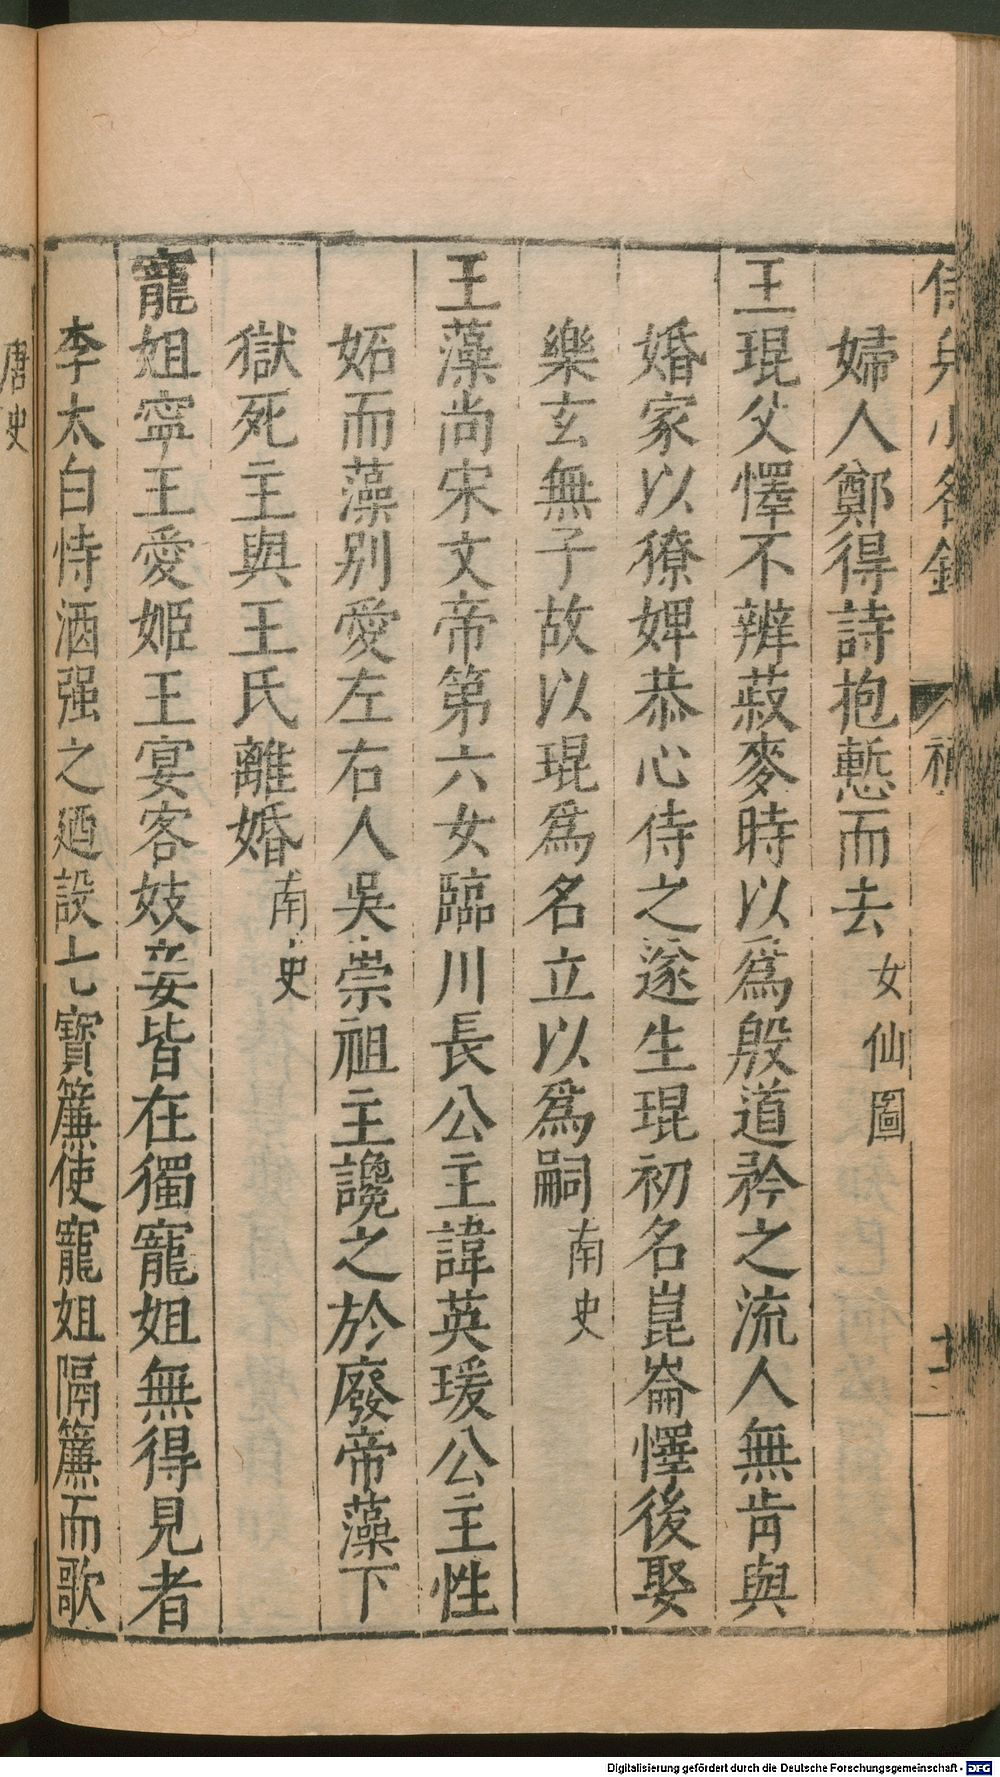 侍兒小名錄 補
婦人鄭得詩抱慙而去女仙圖
王琨父懌不辨菽麥時以爲殷道矜之流人無肯與
婚家以獠婢恭心侍之遂生琨初名崑崙懌後娶
樂玄無子故以琨爲名立以爲嗣南史
王藻尚宋文帝第六女臨川長公主諱英瑗公主性
妬而藻别愛左右人吳崇祖主讒之於廢帝藻下
獄死主與王氏離婚南史
寵姐寧王愛姬王宴客妓妾皆在獨寵姐無得見者
李太白恃酒强之廼設七寶簾使寵姐隔簾而歌
唐史
Digitalisierung gefördert durch die Deutsche Forschungsgemeinschaft - DFG